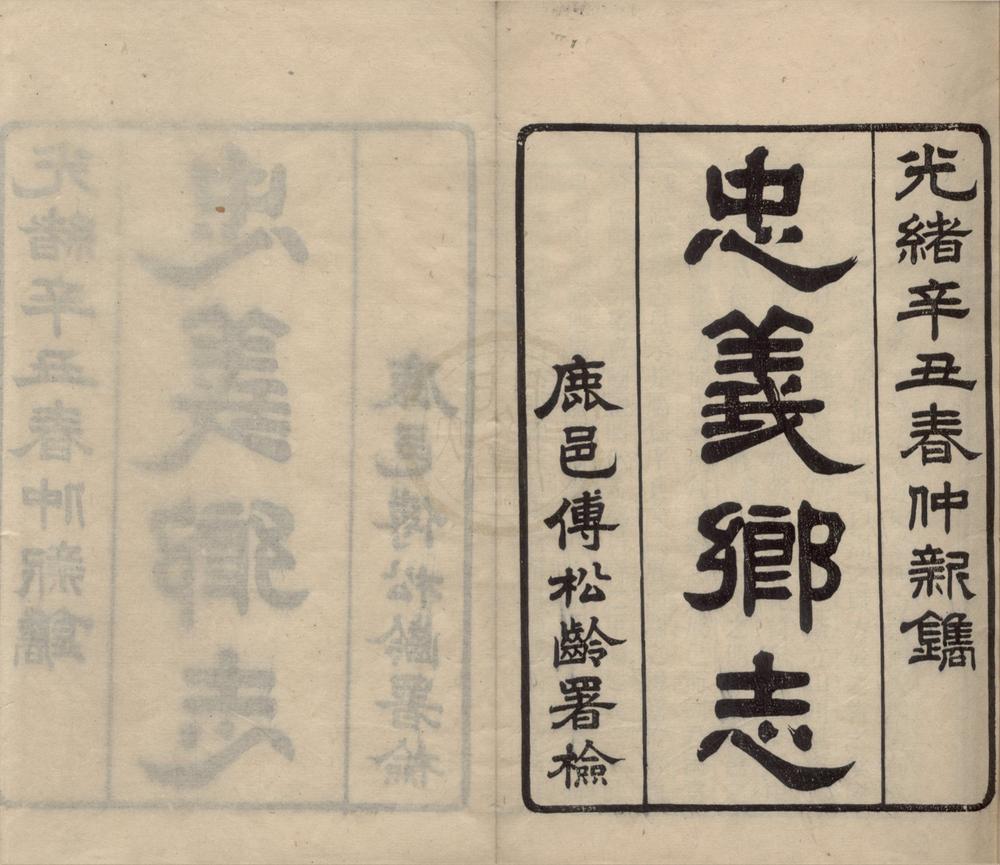 光緒辛丑春仲新鐫
忠義鄉志
鹿邑傅松齡署檢